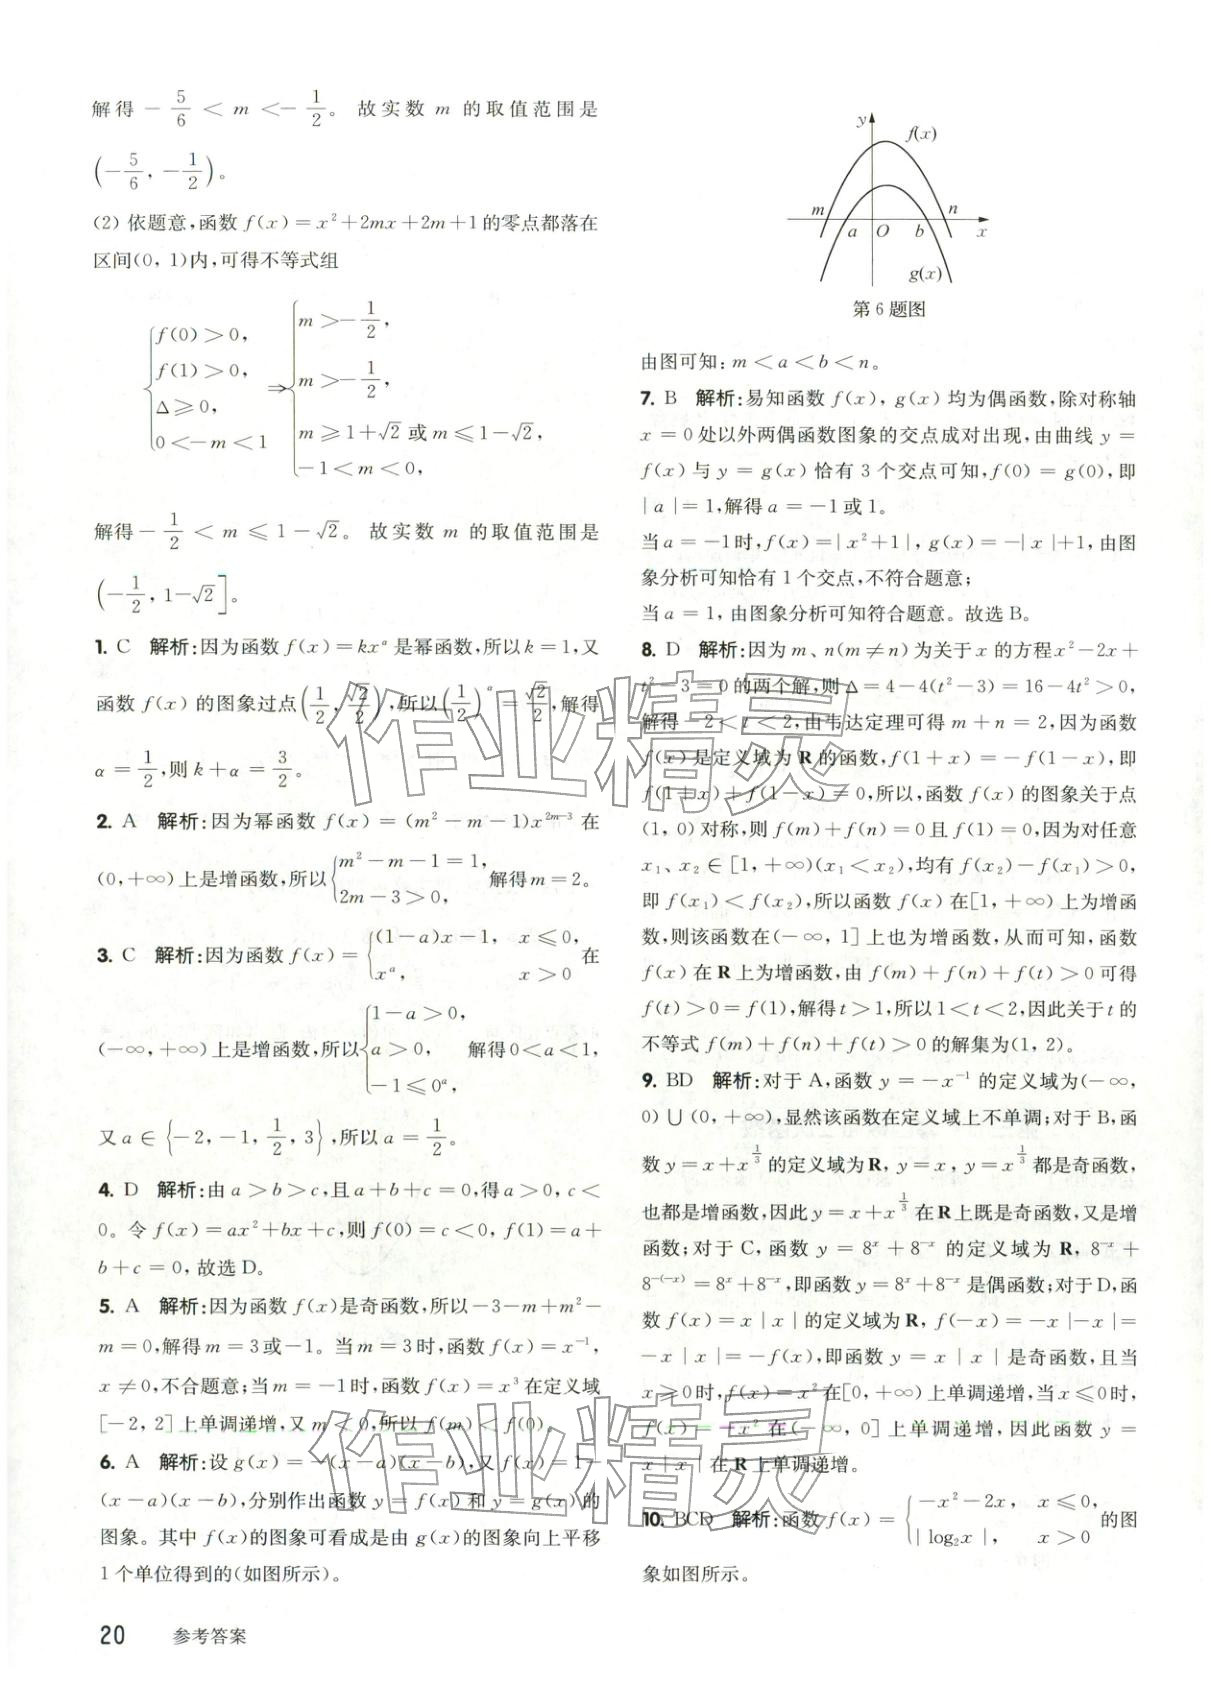 解得 −5/6 < m < −1/2。故实数 m 的取值范围是
(−5/6, −1/2)。
(2) 依题意,函数 f(x)=x²+2mx+2m+1的零点都落在
区间(0, 1)内,可得不等式组
{f(0)>0, f(1)>0, Δ⩾0, 0<−m<1 ⇒ {m>−1/2, m>−1/2, m⩾1+√2 或 m⩽1−√2, −1<m<0,
解得−1/2 < m ⩽ 1−√2。故实数 m 的取值范围是
(−1/2, 1−√2]。
1. C 解析:因为函数 f(x)=kxᵅ 是幂函数,所以 k=1,又
函数 f(x) 的图象过点(1/2, √2/2),所以(1/2)ᵅ=√2/2,解得
α=1/2,则 k+α=3/2。
2. A 解析:因为幂函数 f(x)=(m²−m−1)x^(2m−3) 在
(0,+∞)上是增函数,所以{m²−m−1=1, 2m−3>0, 解得m=2。
3. C 解析:因为函数 f(x)={(1−a)x−1, x⩽0, xᵃ, x>0 在
(−∞,+∞)上是增函数,所以{1−a>0, a>0, −1⩽0ᵃ, 解得0<a<1,
又a∈{−2,−1,1/2,3},所以a=1/2。
4. D 解析:由 a>b>c,且a+b+c=0,得a>0,c<
0。令 f(x)=ax²+bx+c,则f(0)=c<0,f(1)=a+
b+c=0,故选D。
5. A 解析:因为函数 f(x)是奇函数,所以−3−m+m²−
m=0,解得 m=3或−1。当m=3时,函数 f(x)=x⁻¹,
x≠0,不合题意;当 m=−1时,函数 f(x)=x³在定义域
[−2,2]上单调递增,又m<0,所以 f(m)<f(0)。
6. A 解析:设 g(x)=−(x−a)(x−b),又 f(x)=1−
(x−a)(x−b),分别作出函数 y=f(x) 和 y=g(x)的
图象。其中 f(x)的图象可看成是由 g(x)的图象向上平移
1个单位得到的(如图所示)。
20 参考答案
y
f(x)
m
n
a
O
b
x
g(x)
第6题图
由图可知:m<a<b<n。
7. B 解析:易知函数 f(x),g(x)均为偶函数,除对称轴
x=0处以外两偶函数图象的交点成对出现,由曲线 y=
f(x)与 y=g(x)恰有3个交点可知,f(0)=g(0),即
|a|=1,解得a=−1或1。
当a=−1时,f(x)=|x²+1|,g(x)=−|x|+1,由图
象分析可知恰有1个交点,不符合题意;
当a=1,由图象分析可知符合题意。故选B。
8. D 解析:因为 m、n(m≠n)为关于x的方程x²−2x+
t²−3=0的两个解,则Δ=4−4(t²−3)=16−4t²>0,
解得−2<t<2,由韦达定理可得 m+n=2,因为函数
f(x)是定义域为 R 的函数,f(1+x)=−f(1−x),即
f(1+x)+f(1−x)=0,所以,函数 f(x)的图象关于点
(1,0)对称,则 f(m)+f(n)=0且f(1)=0,因为对任意
x₁、x₂∈[1,+∞)(x₁<x₂),均有 f(x₂)−f(x₁)>0,
即 f(x₁)<f(x₂),所以函数 f(x)在[1,+∞)上为增函
数,则该函数在(−∞,1]上也为增函数,从而可知,函数
f(x)在R上为增函数,由 f(m)+f(n)+f(t)>0可得
f(t)>0=f(1),解得t>1,所以1<t<2,因此关于t的
不等式 f(m)+f(n)+f(t)>0的解集为(1,2)。
9. BD 解析:对于 A,函数 y=−x⁻¹ 的定义域为(−∞,
0)∪(0,+∞),显然该函数在定义域上不单调;对于 B,函
数 y=x+x^(1/3) 的定义域为R,y=x,y=x^(1/3) 都是奇函数,
也都是增函数,因此 y=x+x^(1/3) 在R上既是奇函数,又是增
函数;对于 C,函数 y=8ˣ+8⁻ˣ 的定义域为 R,8⁻ˣ+
8^(−(−x))=8ˣ+8⁻ˣ,即函数 y=8ˣ+8⁻ˣ是偶函数;对于D,函
数 f(x)=x|x|的定义域为R,f(−x)=−x|−x|=
−x|x|=−f(x),即函数 y=x|x|是奇函数,且当
x⩾0时,f(x)=x²在[0,+∞)上单调递增,当x⩽0时,
f(x)=−x²在(−∞,0]上单调递增,因此函数 y=
x|x|在R上单调递增。
10. BCD 解析:函数 f(x)={−x²−2x, x⩽0, |log₂x|, x>0 的图
象如图所示。
作业精灵
作业精灵